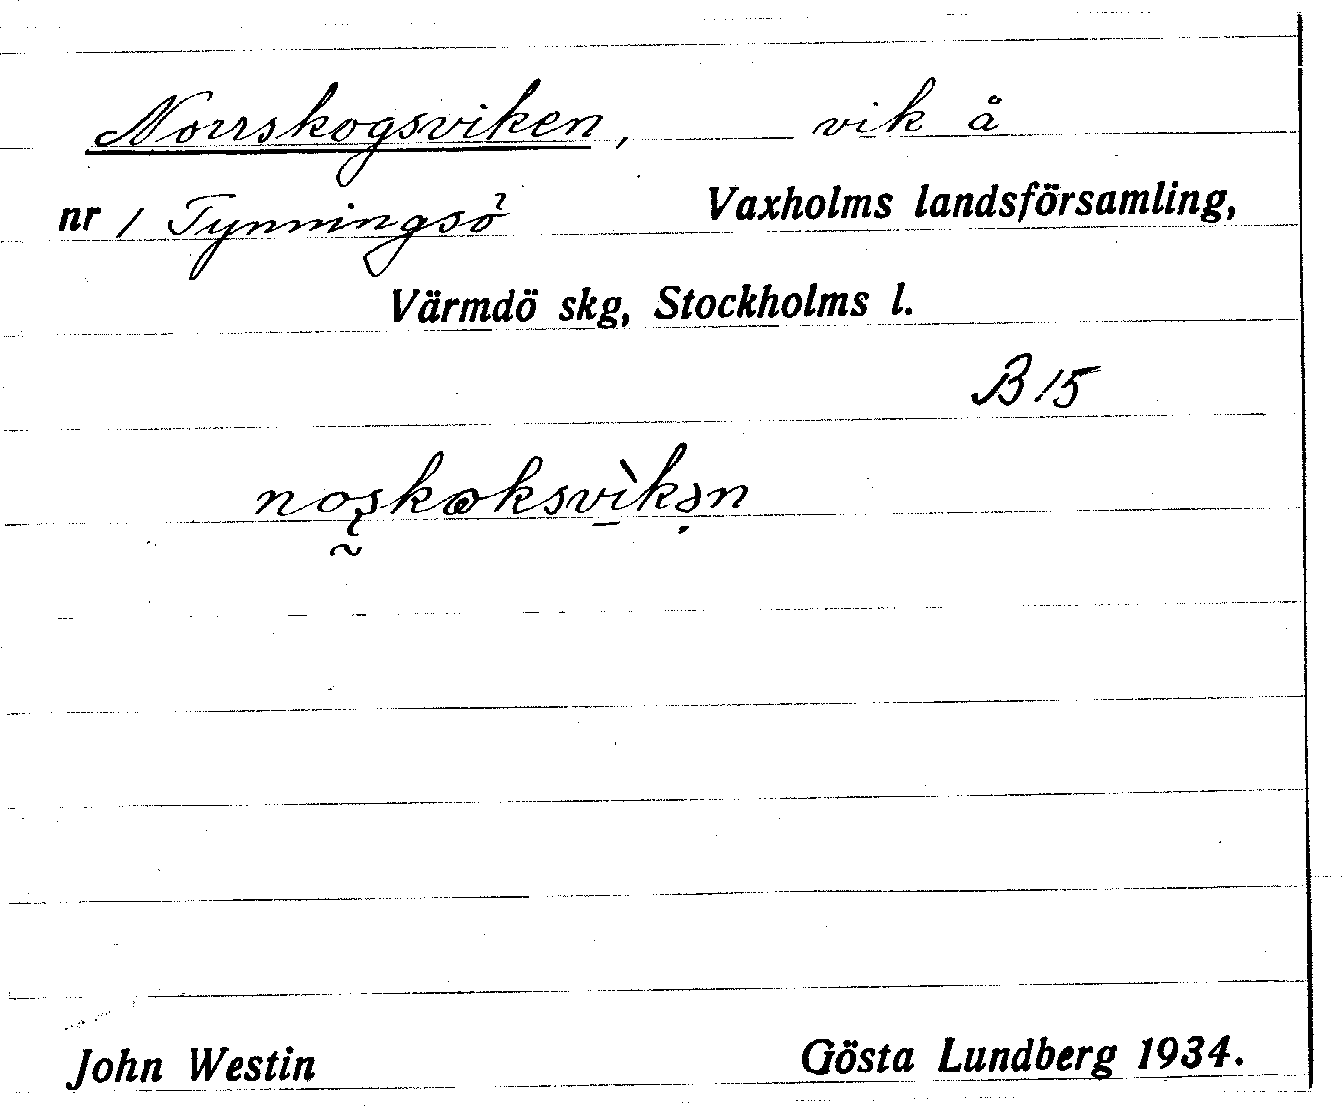 Norrskogsviken, vik å
nr 1 Tynningsö Vaxholms landsförsamling,
Värmdö skg, Stockholms l.
B 15
John Westin Gösta Lundberg 1934.